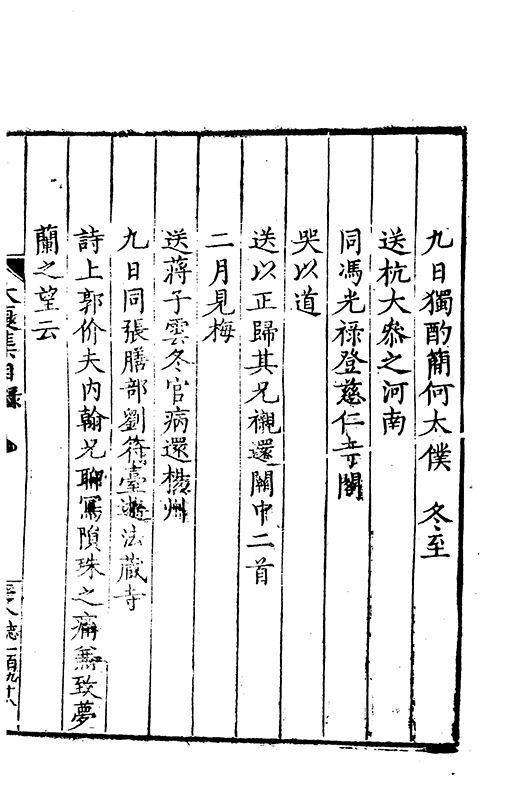 九日獨酌簡何太僕　冬至
送杭大叅之河南
同馮光祿登慈仁寺閣
哭以道
送以正歸其兄櫬還關中二首
二月見梅
送蔣子雲冬官病還楊州
九日同張膳部劉符臺遊法藏寺
詩上郭价夫內翰兄聊寫隕珠之痛兼致夢
蘭之望云
集目錄